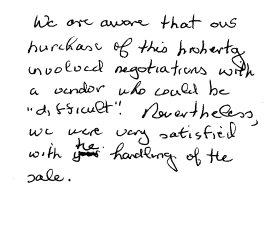 We are aware that our
purchase of this property
involved negotiations with
a vendor who could be
"difficult". Nevertheless,
we were very satisfied
with the handling of the
sale.